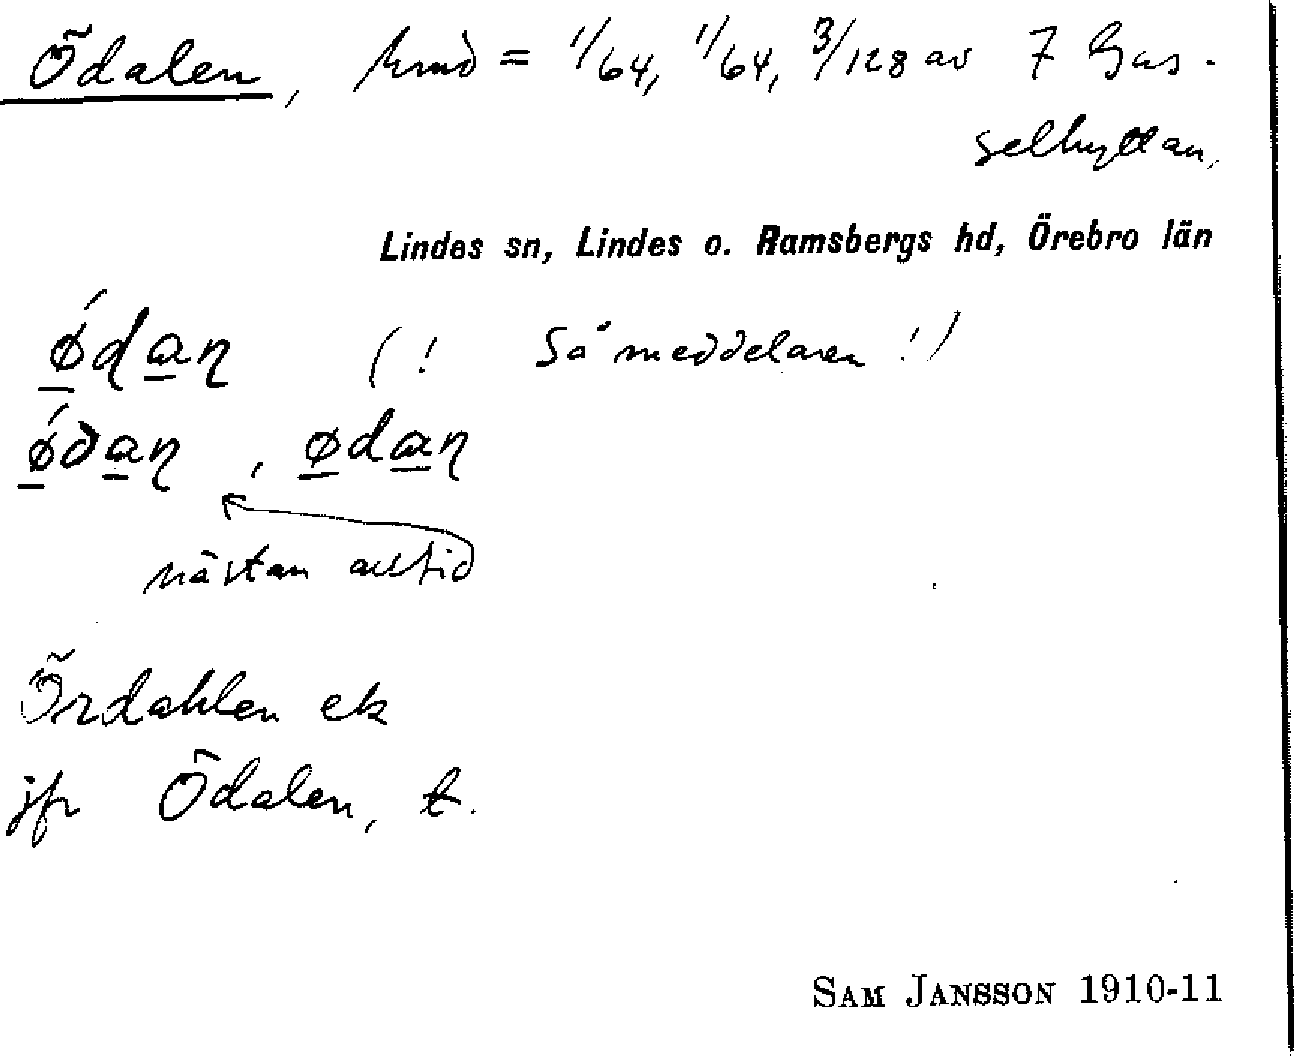 Ödalen, hmd = 1/64, 1/64, 3/128 av 7 Gus-
selhyttan.
Lindes sn, Lindes o. Ramsbergs hd, Örebro län
ǿdaṇ (! Så meddelaren !)
ǿðaṇ, ødaṇ
nästan alltid
Ördahlen ek
jfr Ödalen, t.
SAM JANSSON 1910-11